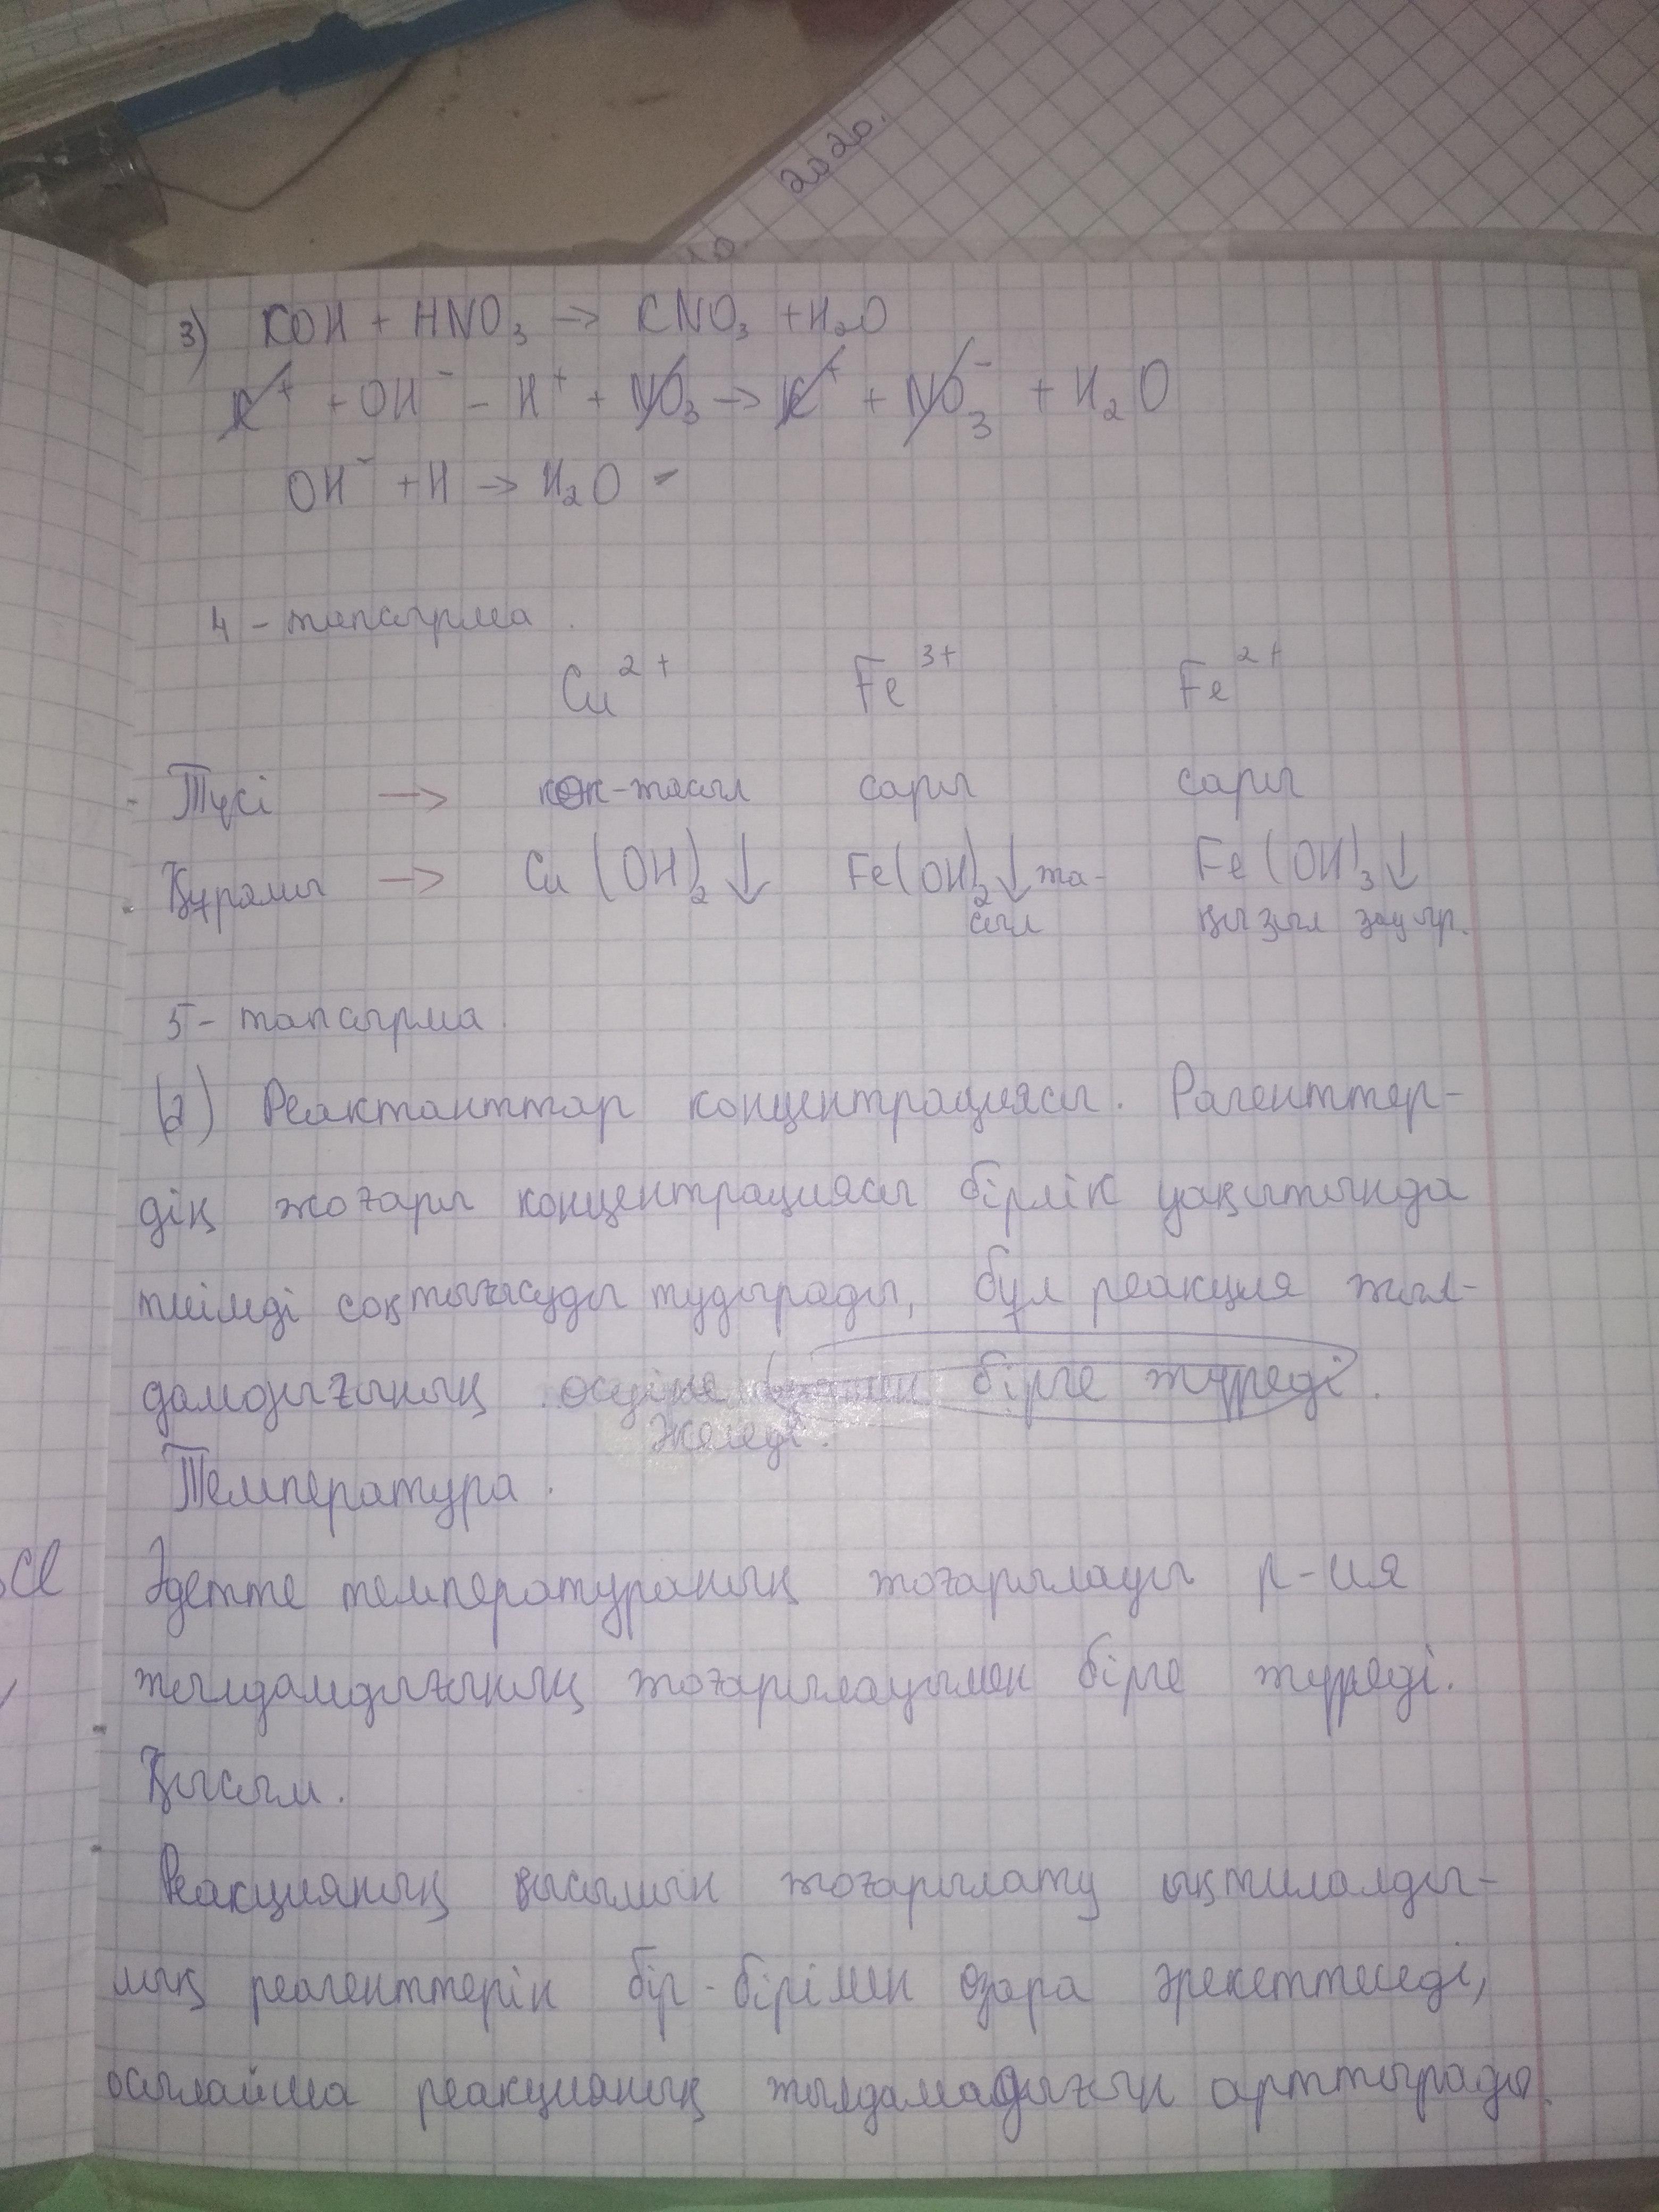 2020.
10.
3) KOH + HNO₃ → KNO₃ + H₂O
K⁺ + OH⁻ - H⁺ + NO₃ → K⁺ + NO₃⁻ + H₂O
OH⁻ + H → H₂O
4 - тапсырма.
Cu²⁺ Fe³⁺ Fe²⁺
Түсі → көк-жасыл сары сары
Құрамы → Cu(OH)₂↓ Fe(OH)₂↓ жа- Fe(OH)₃↓
сыл қызыл зауыр.
5 - тапсырма.
(а) Реактанттар концентрациясы. Рагенттер-
дің жоғары концентрациясы бірлік уақытында
тиімді соқтығысуды тудырады, бұл реакция жыл-
дамдығының өсуіне бірге жүреді.
әкеледі.
Температура.
Әдетте температураның жоғарылауы р-ия
жылдамдығының жоғарылауымен бірге жүреді.
Қысым.
Реакцияның қысымын жоғарылату ықтималды-
лық реагенттерін бір-бірімен өзара әрекеттеседі,
осылайша реакцияның жылдамадығын арттырады.
Cl